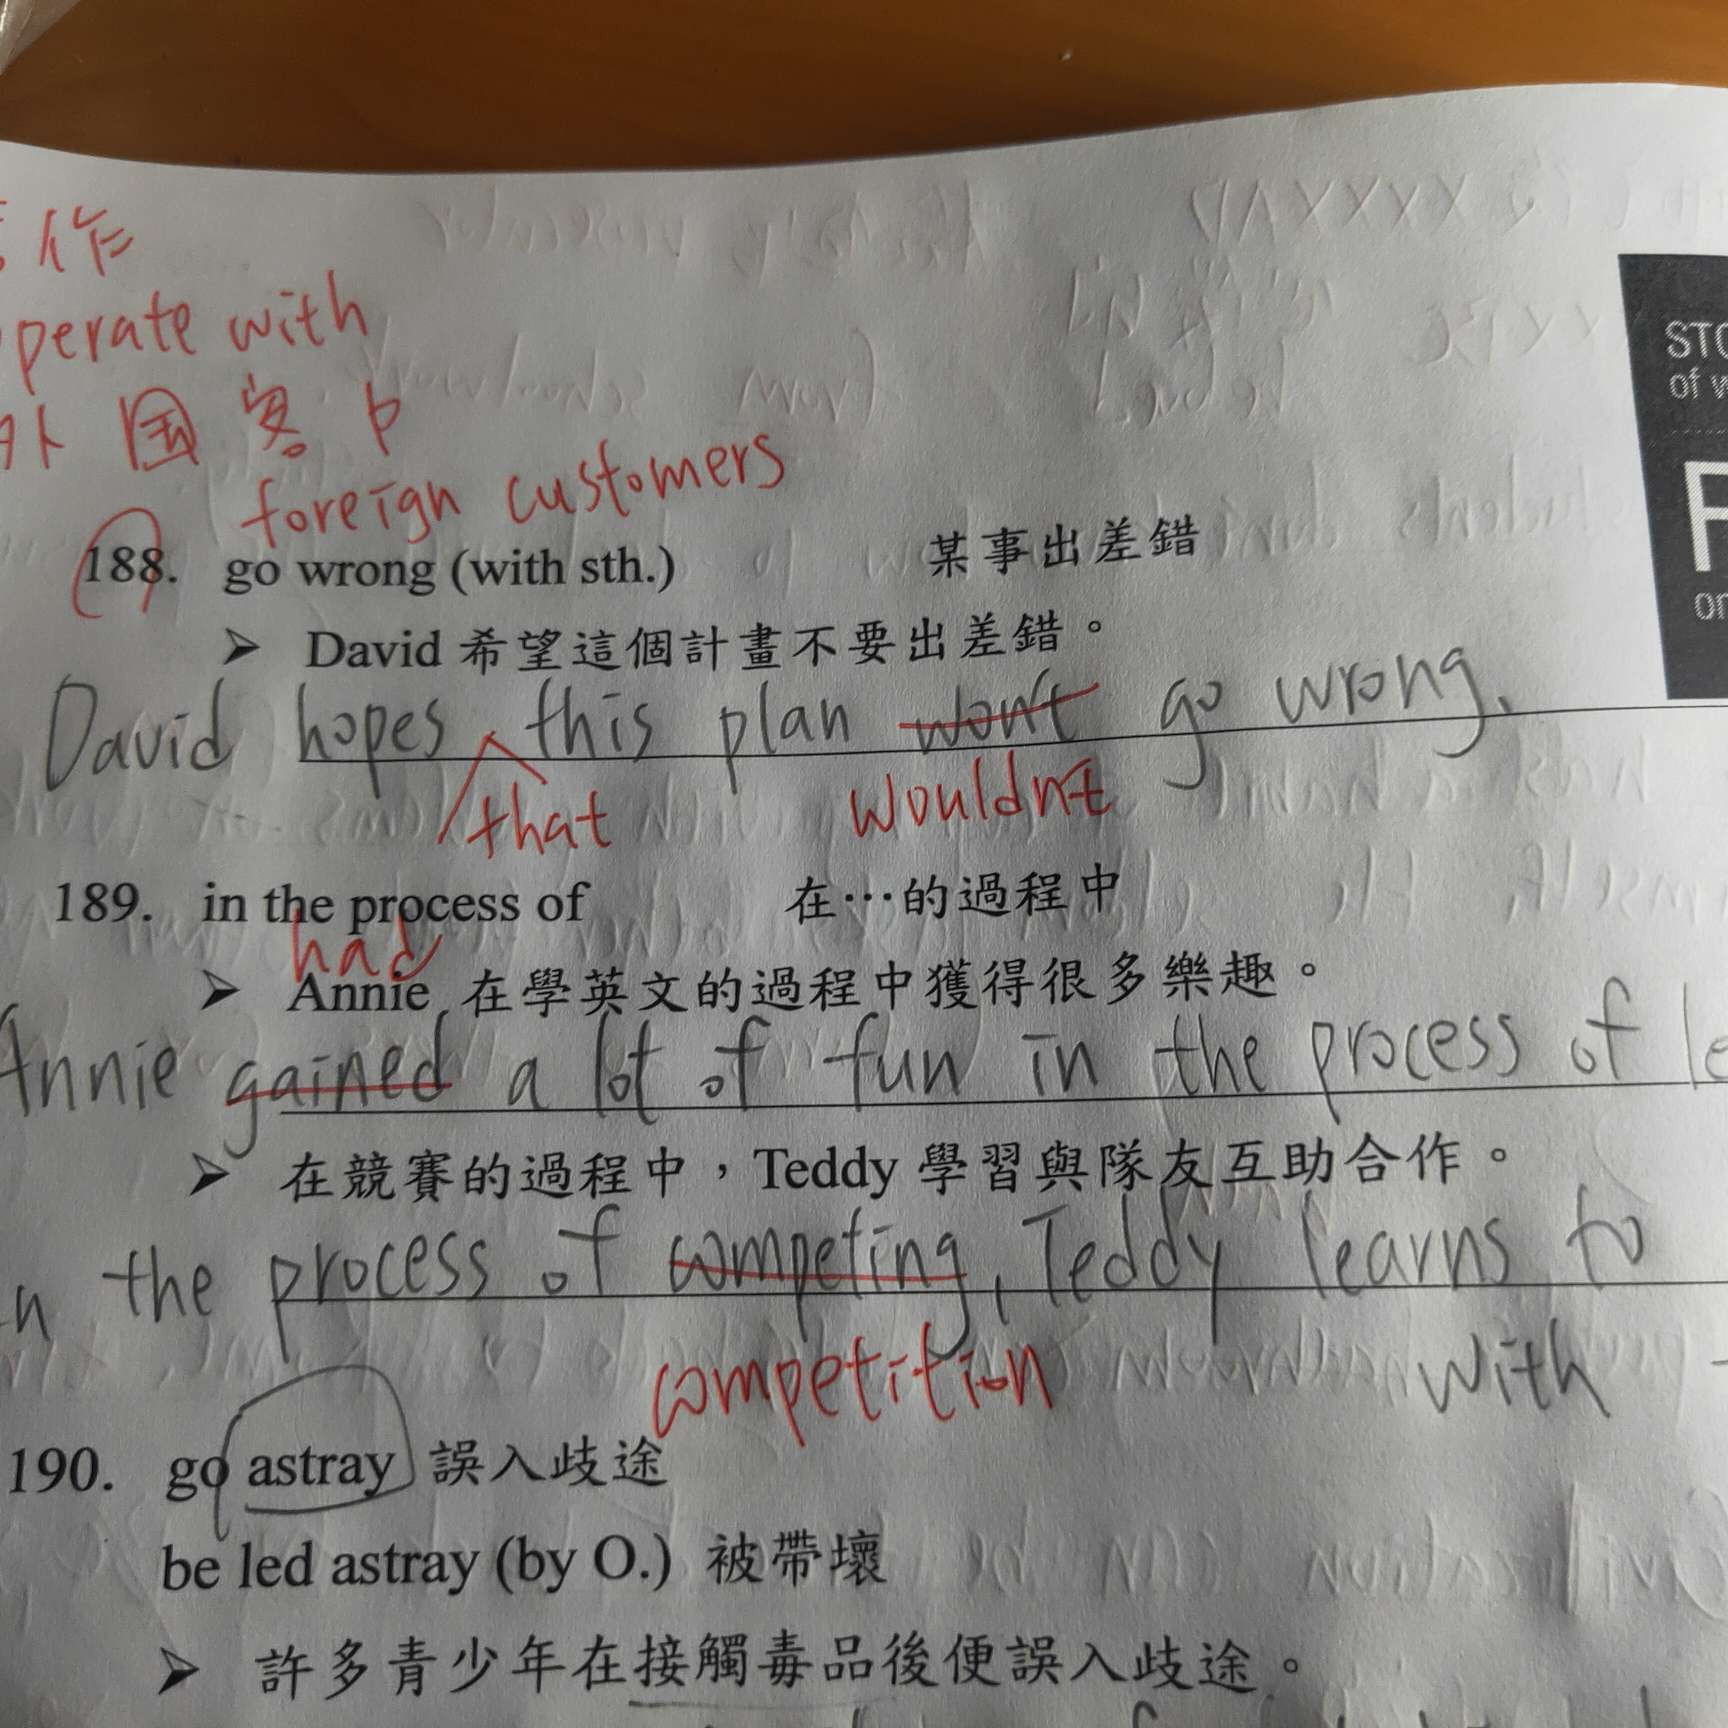 作
perate with
外国客户
foreign customers
188. go wrong (with sth.) 某事出差錯
➤ David 希望這個計畫不要出差錯。
David hopes this plan won't go wrong.
that wouldn't
189. in the process of 在…的過程中
had
➤ Annie 在學英文的過程中獲得很多樂趣。
Annie gained a lot of fun in the process of le
➤ 在競賽的過程中，Teddy 學習與隊友互助合作。
n the process of competing, Teddy learns to
competition with
190. go astray 誤入歧途
be led astray (by O.) 被帶壞
➤ 許多青少年在接觸毒品後便誤入歧途。
STO
of w
F
on